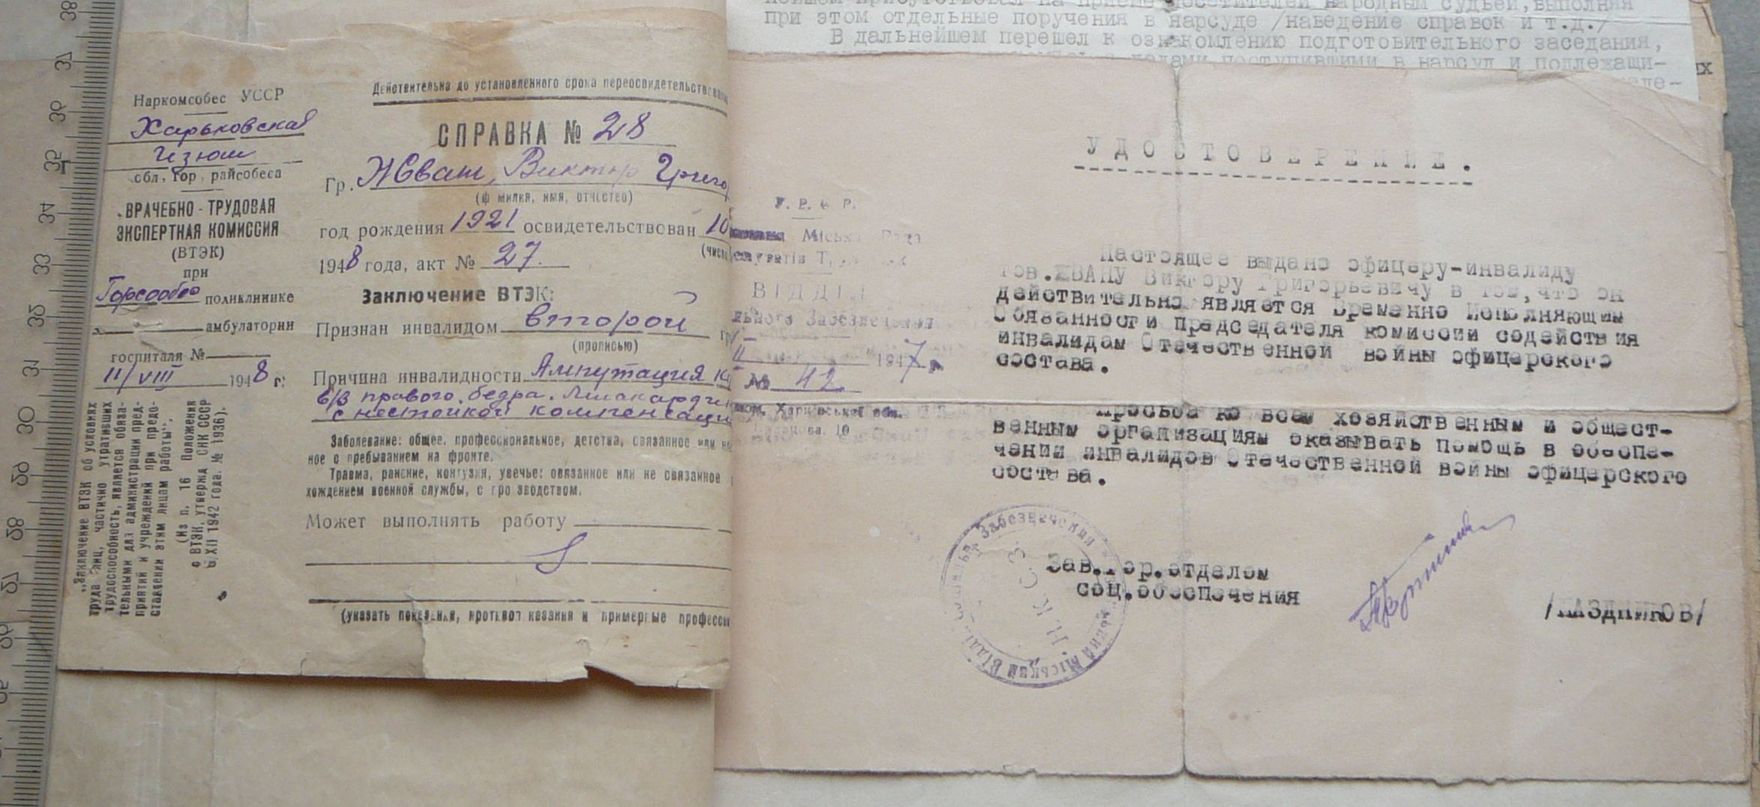 при этом отдельные поручения в нарсуде /наведение справок и т.д./
В дальнейшем перешел к ознакомлению подготовительного заседания,
поступившими в нарсуд и подлежащи-
Наркомсобес УССР
Харьковская
Изюм
обл, гор, райсобеса
ВРАЧЕБНО-ТРУДОВАЯ
ЭКСПЕРТНАЯ КОМИССИЯ
(ВТЭК)
при
поликлинике
амбулатории
госпиталя №
11/VIII 1948 г:
„Заключение ВТЭК об условиях
труда лиц, частично утративших
трудоспособность, является обяза-
тельными для администрации пред-
приятий и учреждений при предо-
ставлении этим лицам работы".
(Из п. 16 Положения
о ВТЭК, утвержд СНК СССР
6/XII 1942 года. № 1936).
Действительна до установленного срока переосвидетельствования
СПРАВКА № 28
Гр. Жван, Виктор Григо
(ф милия, имя, отчество)
год рождения 1921 освидетельствован 10
(число
1948 года, акт № 27.
Заключение ВТЭК:
Признан инвалидом второй гр
(прописью)
Причина инвалидности Ампутация
в/з правого бедра.
с нестойкой компенсаци
Заболевание: общее, профессиональное, детства, связанное или не
ное с пребыванием на фронте.
Травма, ранение, контузия, увечье: связанное или не связанное
хождением военной службы, с про зводством.
Может выполнять работу
(указать показания, противоп казания и примерные профессии
УДОСТОВЕРЕНИЕ.
У. Р. С. Р.
Міська Рада
ВІДДІЛ
Забезпечення
1947 р.
№ 42
Харківської обл.
10
Настоящее выдано офицеру-инвалиду
тов.ЖВАНУ Виктору Григорьевичу в том,что он
действительно является Временно Исполняющим
Обязанности председателя комиссии содействия
инвалидам Отечественной войны офицерского
состава.
Просьба ко всем хозяйственным и общест-
венным организациям оказывать помощь в обеспе-
чении инвалидов Отечественной войны офицерского
состава.
Зав.Гор.отделом
соц.обеспечения
/ПАЗДНИКОВ/
Забезпечення
Міський Відділ
Н.К.С.З.